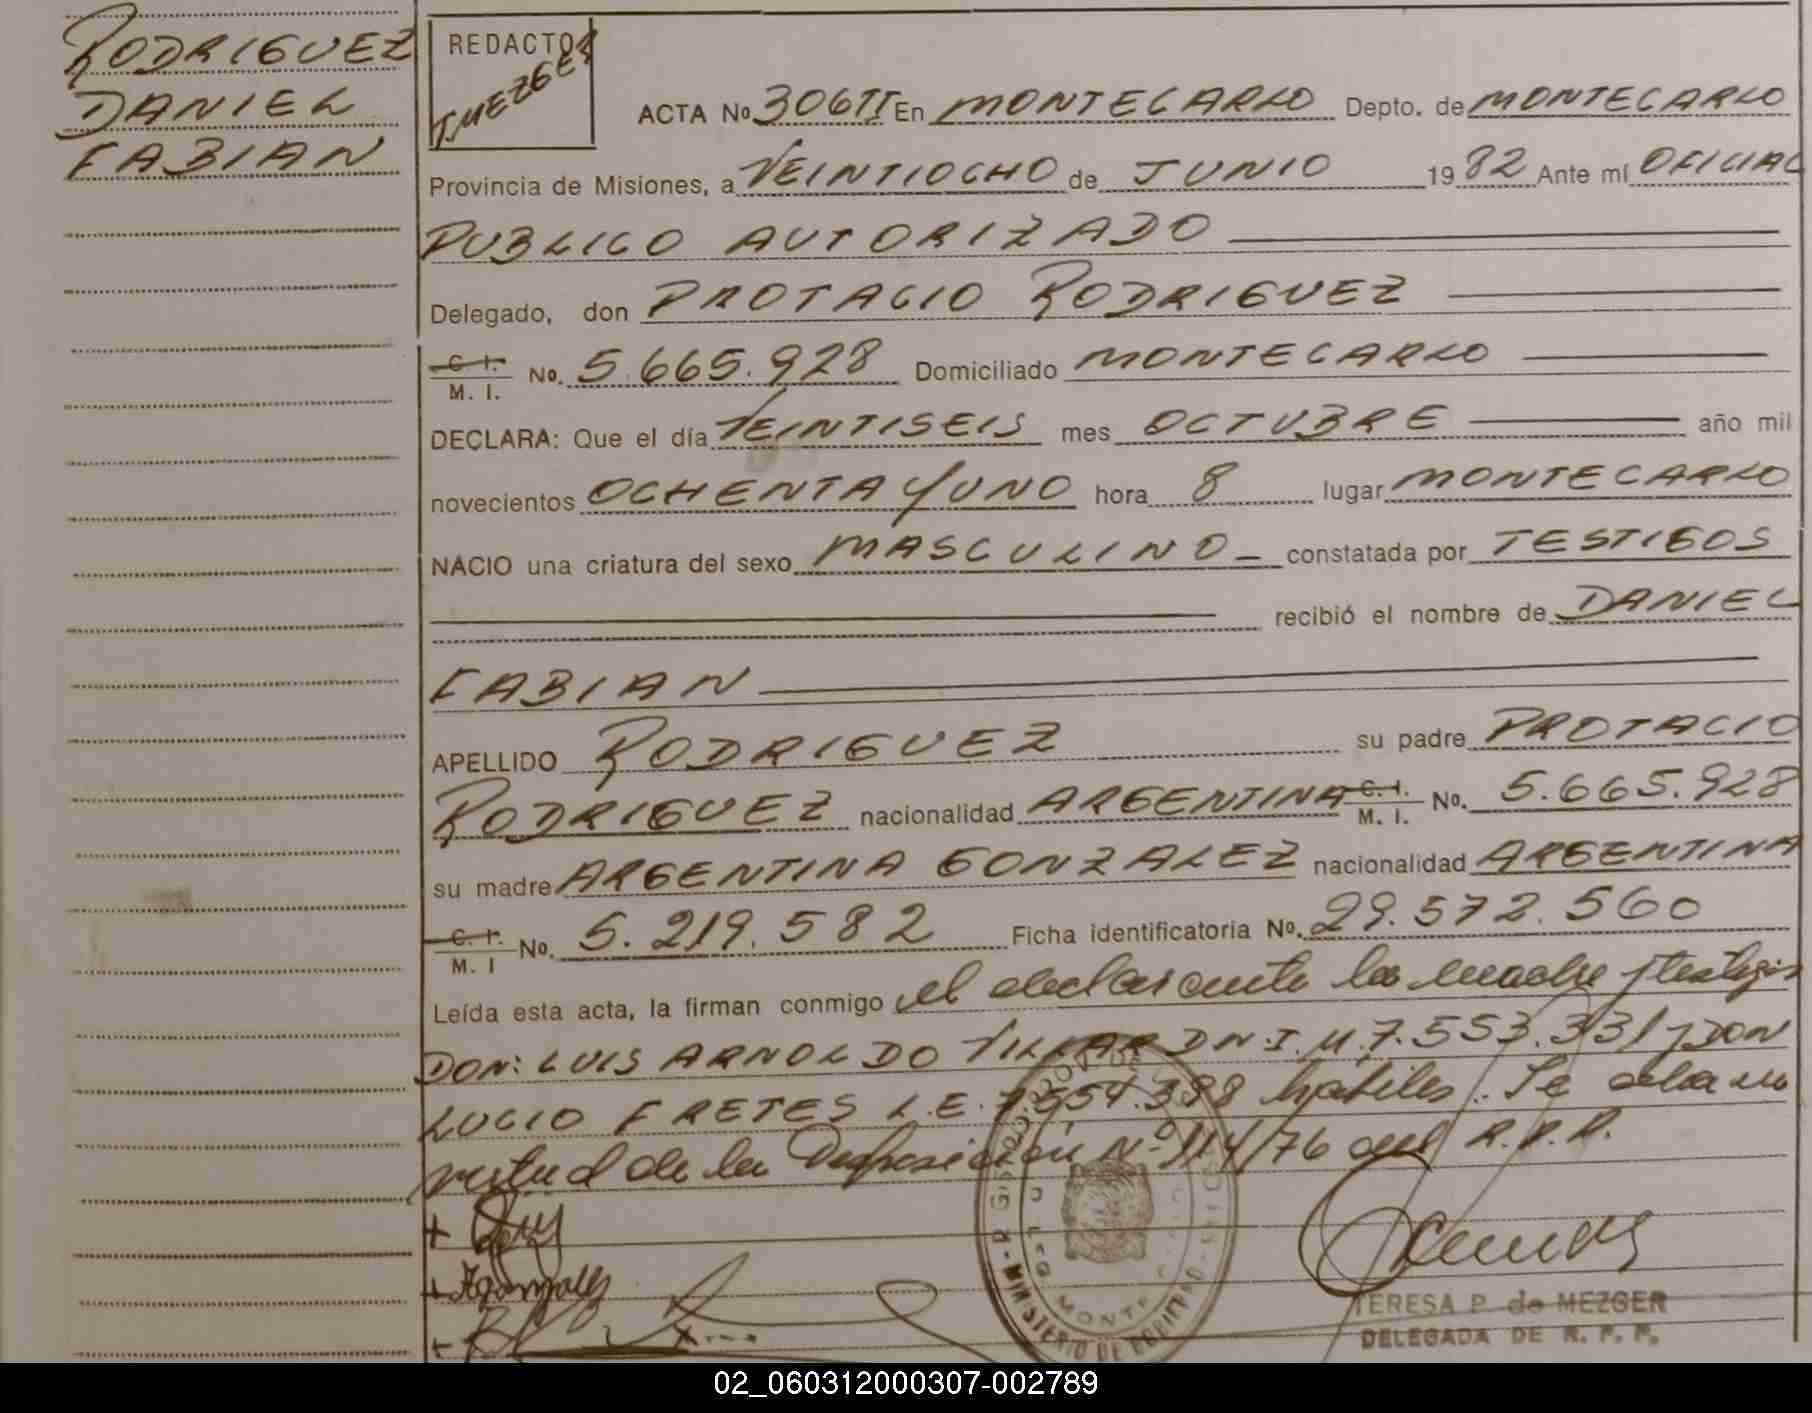 RODRIGUEZ
DANIEL
FABIAN
REDACTOR
T.MEZGER
ACTA No 306 II En MONTECARLO Depto. de MONTECARLO
Provincia de Misiones, a VEINTIOCHO de JUNIO 19 82 Ante mí OFICIAL
PUBLICO AUTORIZADO
Delegado, don PROTACIO RODRIGUEZ
C. I. M. I. No. 5.665.928 Domiciliado MONTECARLO
DECLARA: Que el día VEINTISEIS mes OCTUBRE año mil
novecientos OCHENTA Y UNO hora 8 lugar MONTECARLO
NACIO una criatura del sexo MASCULINO constatada por TESTIGOS
recibió el nombre de DANIEL
FABIAN
APELLIDO RODRIGUEZ su padre PROTACIO
RODRIGUEZ nacionalidad ARGENTINA C. I. M. I. No. 5.665.928
su madre ARGENTINA GONZALEZ nacionalidad ARGENTINA
C. I. M. I No. 5.219.582 Ficha identificatoria No. 29.572.560
Leída esta acta, la firman conmigo el declarante la madre y testigos
DON: LUIS ARNOLDO VILLAR D.N.I. M.7.553.331 y DON
LUCIO FRETES L.E. 7.554.398 hábiles. Se
virtud de la Disposición Nº 114/76 del R.P.P.
TERESA P. de MEZGER
DELEGADA DE R. P. P.
02_060312000307-002789